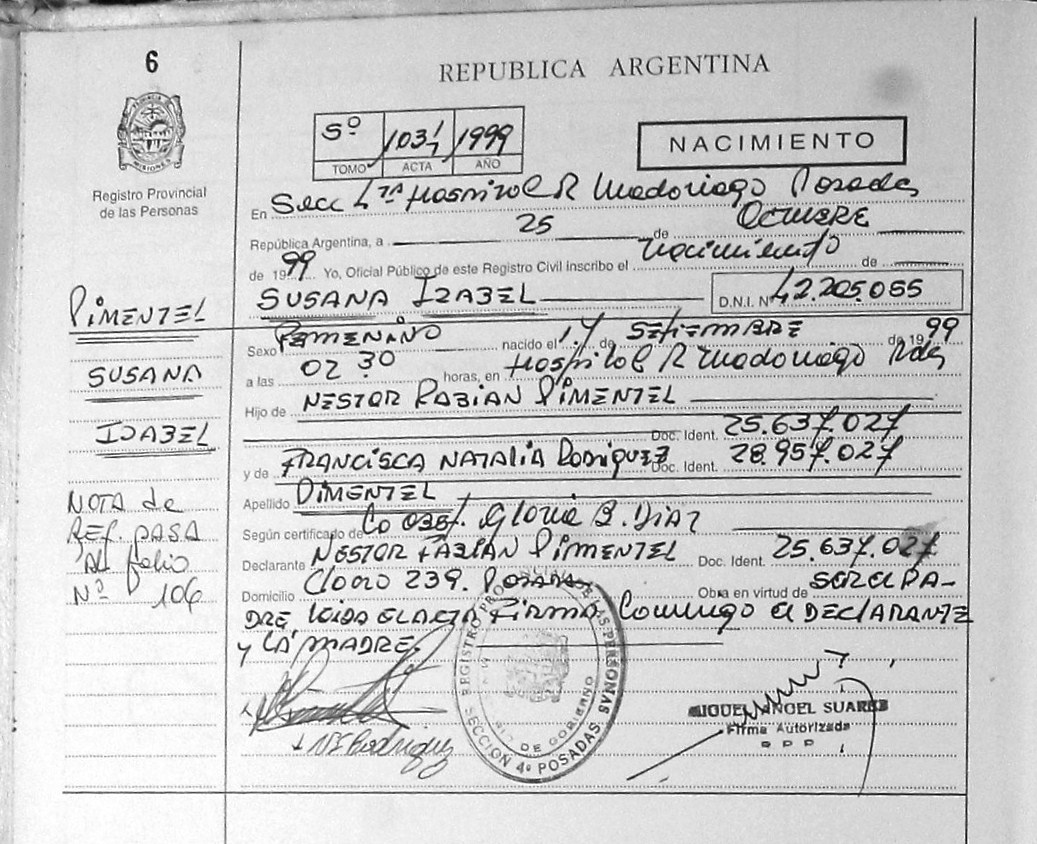 6
REPUBLICA ARGENTINA
PROVINCIA MISIONES
Registro Provincial
de las Personas
Sº 1031 1999
TOMO ACTA AÑO
NACIMIENTO
En Secc 4ta Hospital R Madariaga Posadas
República Argentina, a 25 de Octubre
de 1999 Yo, Oficial Público de este Registro Civil inscribo el nacimiento de
SUSANA IZABEL D.N.I. Nº 42.205.055
PIMENTEL
SUSANA
IZABEL
NOTA de
REF. PASA
Al folio
Nº 106
Sexo FEMENINO nacido el 14 de SETIEMBRE de 1999
a las 02 30 horas, en Hospital R Madariaga Pdas
Hijo de NESTOR FABIAN PIMENTEL
Doc. Ident. 25.637.027
y de FRANCISCA NATALIA RODRIGUEZ Doc. Ident. 28.957.027
Apellido PIMENTEL
Según certificado de La OBST. Gloria B. DIAZ
Declarante NESTOR FABIAN PIMENTEL Doc. Ident. 25.637.027
Domicilio 239. POSADAS Obra en virtud de SER EL PA-
DRE, LEIDA EL ACTA FIRMA Conmigo el DECLARANTE
y LA MADRE.
REGISTRO PROVINCIAL DE LAS PERSONAS
DE GOBIERNO
SECCION 4º POSADAS
NF Rodriguez
MIGUEL ANGEL SUAREZ
Firma Autorizada
R P P